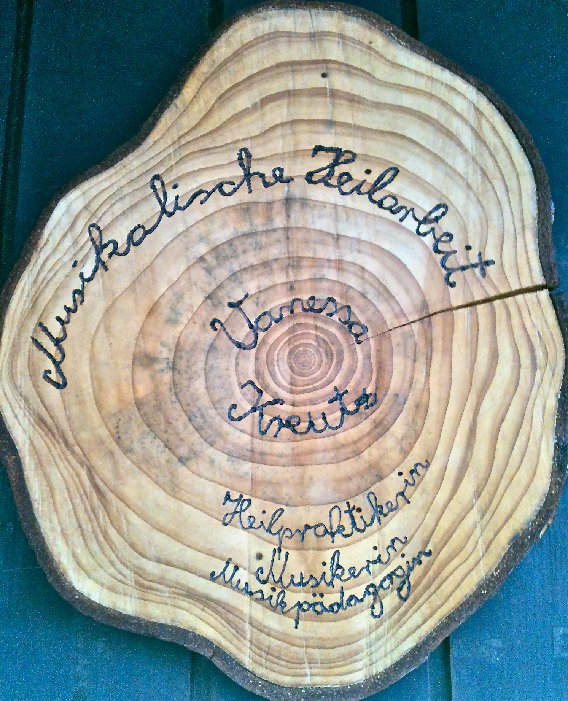 Musikalische Heilarbeit
Vanessa
Kreutz
Heilpraktikerin
Musikerin
Musikpädagogin